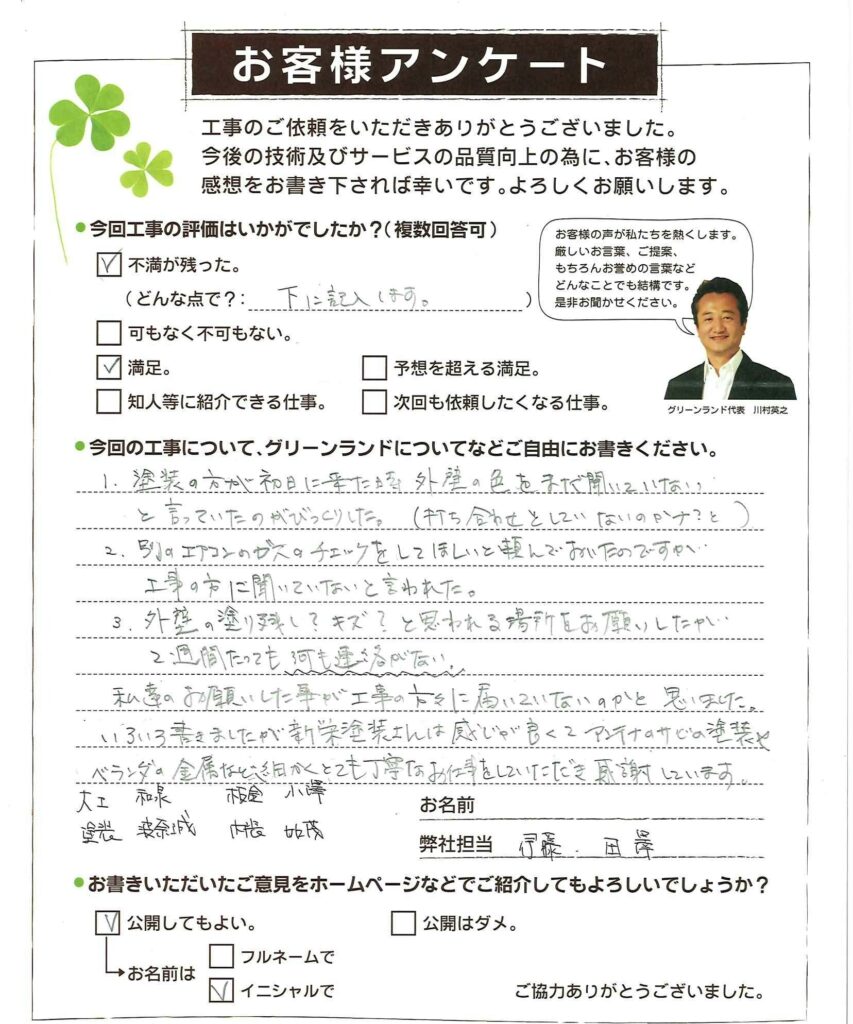 お客様アンケート
工事のご依頼をいただきありがとうございました。
今後の技術及びサービスの品質向上の為に、お客様の
感想をお書き下されば幸いです。よろしくお願いします。
今回工事の評価はいかがでしたか?(複数回答可)
不満が残った。
(どんな点で?: 下に記入します。)
可もなく不可もない。
満足。
予想を超える満足。
知人等に紹介できる仕事。
次回も依頼したくなる仕事。
お客様の声が私たちを熱くします。
厳しいお言葉、ご提案、
もちろんお誉めの言葉など
どんなことでも結構です。
是非お聞かせください。
グリーンランド代表 川村英之
今回の工事について、グリーンランドについてなどご自由にお書きください。
1. 塗装の方が初日に来た時 外壁の色をまだ聞いていない
と言っていたのがびっくりした。(打ち合わせとしていないのかナ?と)
2. 別のエアコンのガスのチェックをしてほしいと頼んでおいたのですが…
工事の方に聞いていないと言われた。
3. 外壁の塗り残し?キズ?と思われる場所をお願いしたが…
2週間たっても何も連絡がない。
私達のお願いした事が工事の方々に届いていないのかと思いました。
いろいろ書きましたが新栄塗装さんは感じが良くてアンテナのサビの塗装や
ベランダの金属など、細かくとても丁寧なお仕事をしていただき感謝しています。
大工 和泉 板金 小澤
塗装 内装
お名前
弊社担当 伊藤・田澤
お書きいただいたご意見をホームページなどでご紹介してもよろしいでしょうか?
公開してもよい。
公開はダメ。
お名前は
フルネームで
イニシャルで
ご協力ありがとうございました。